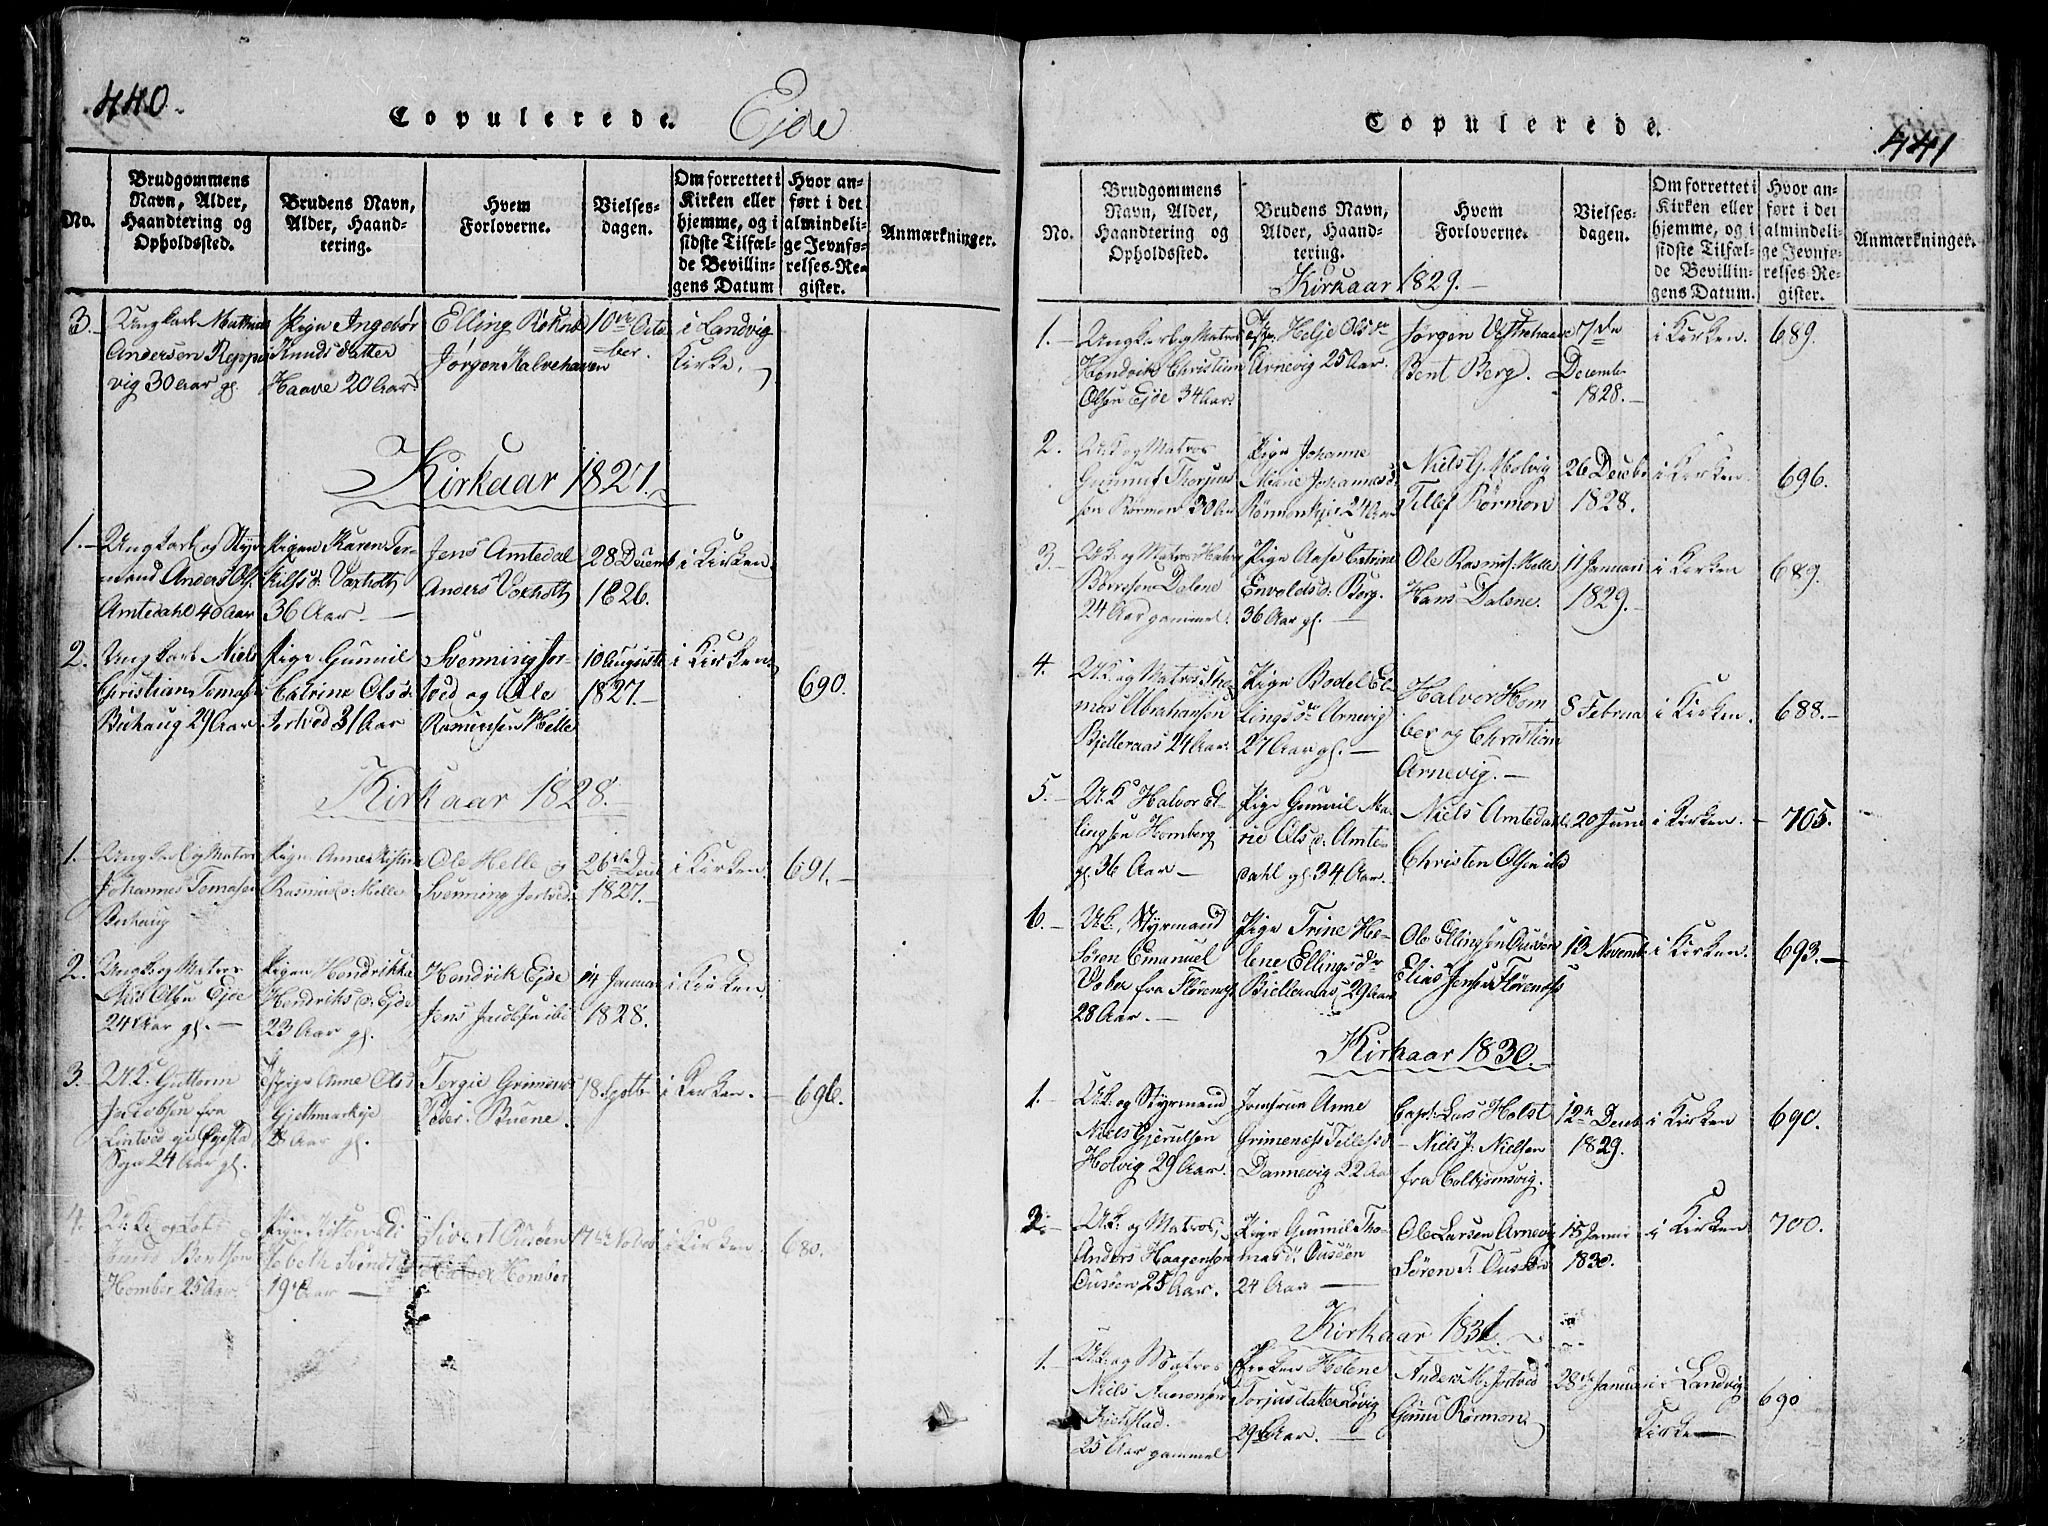 440.
Copulerede. Ejde
No.
Brudgommens Navn, Alder, Haandtering og Opholdssted.
Brudens Navn, Alder, Haandtering.
Hvem Forloverne.
Vielsesdagen.
Om forrettet i Kirken eller hjemme, og i sidste Tilfælde Bevillingens Datum
Hvor anført i det almindelige Jevnførelses-Register.
Anmærkninger.
3. Ungkarl Mathias Andersen Reppevig 30 Aar gl.
Pige Ingebor Knudsdatter Haave 20 Aar
Elling
Jørgen Kalvehaven
10de October.
i Landvig Kirke.
Kirkaar 1827.
1. Ungkarl og Styrmand Anders Ols. Amtedahl 40 Aar
Pigen Karen Terkilsd: Vaxholt 36 Aar.
Jens Amtedal
Anders Voxholt
28 Decemb 1826.
i Kirken.
2. Ungkarl Niels Christian Tomasen Buhaug 29 Aar
Pige Gunnil Catrine Olsd. Jortved 31 Aar
Svenning Jortved og Ole Rasmusen Helle
10 Auguste 1827.
i Kirken
690.
Kirkaar 1828.
1. Ungkarl og Matros Johannes Tomasen Buhaug
Pige Anne Kistine Rasmusd: Helle
Ole Helle og Svenning Jortved
26de Decb 1827.
i Kirken.
691.
2. Ungk. og Matros Niels Olsen Ejde 24 Aar gl.
Pigen Hendrikke Hendriksd. Ejde 23 Aar gl.
Hendrik Ejde
Jens Jacobsen ibd
14 Januar 1828.
i Kirken.
3. U.K. Guttorm Jacobsen fra Lintved i Øyestad Sogn 24 Aar gl.
Pige Anne Olsd Gjethmarkeje Aar gl.
Tergie Grimenes
Peder Buene.
18 Septb
i Kirken.
696.
4. U.K. og Lods Knud Bentsen Homber 25 Aar.
Pige Kisten Elisebeth 19 Aar
Sivert Ousøen
Halvor Homber
17de Novbr
i Kirken.
680.
Copulerede.
441
No.
Brudgommens Navn, Alder, Haandtering og Opholdssted.
Brudens Navn, Alder, Haandtering.
Hvem Forloverne.
Vielsesdagen.
Om forrettet i Kirken eller hjemme, og i sidste Tilfælde Bevillingens Datum.
Hvor anført i det almindelige Jevnførelses-Register.
Anmærkninger.
Kirkaar 1829.
1. Ungkarl og Matros Hendrik Christian Olsen Ejde 34 Aar.
Pige Helje Olsdr Arnevig 25 Aar.
Jørgen Vestnehaave
Bent Berg.
7de December 1828.
i Kirken.
689.
2. U.K. og Matros Gunnuf Thorjusen Rørmon 30 Aar
Pige Johanne Marie Johannesd: Rørmonheje 24 Aar
Niels G. Holvig
Tillef Rørmon
26 Decebr 1828.
i Kirken.
696.
3. U.k. og Matros Halvor Børresen Dalene 24 Aar gammel.
Pige Aase Catrine Envoldsd: Borg. 36 Aar gl.
Ole Rasmus. Helle
Hans Dalene.
11 Januari 1829.
i Kirken
689.
4. U.k. og Matros Thomas Abrahamsen Bjelleraas 24 Aar.
Pige Bodel Ellingsdr Arnevig 27 Aar gl.
Halvor Homber og Christian Arnevig.
8 Februa
i Kirken.
688.
5. U.K. Halvor Ellingsen Homberg gl. 36 Aar
Pige Gunnil Marie Olsd. Amtedahl gl. 34 Aar.
Niels Amtedahl
Christen Olsen ibd
20 Juni
i Kirken.
705.
6. U.k., Styrmand Søren Emanuel fra Florenes 28 Aar.
Pige Trine Helene Ellingsdr Bjelleraas, 29 Aar
Ole Ellingsen Ousøen
Elias Jensen Florenes
13 Novemb
i Kirken.
693.
Kirkaar 1830.
1. U.k. og Styrmand Niels Gjerulsen Holvig 29 Aar.
Jomfrue Anne Grimenes Tellefsd Dannevig 22 Aar
Capt. Lars Holst
Niels J. Nielsen fra Calkjonsvig.
12te Decemb 1829.
i Kirken
690.
2. U.k. og Matros Anders Haagensen Ousøen, 25 Aar.
Pige Gunnil Thomasdr Ousøen 24 Aar
Ole Larsen Arnevig
Søren T. Ousøen
15 Januar 1830.
i Kirken
700.
Kirkaar 1831.
1. U.k. og Matros Niels Aanonsen Kielstad. 25 Aar gammel
Helene Torjusdatter Løvig 29 Aar.
Anders M. Jortved
Gunu Rørmon
28de Januari
i Landvig Kirke
690